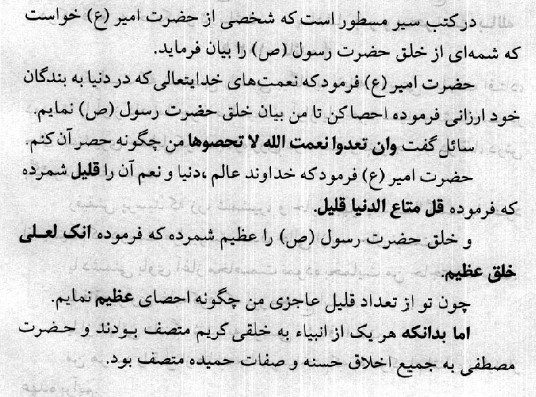 در کتب سیر مسطور است که شخصی از حضرت امیر (ع) خواست
که شمه‌ای از خلق حضرت رسول (ص) را بیان فرماید.
حضرت امیر (ع) فرمود که نعمت‌های خدایتعالی که در دنیا به بندگان
خود ارزانی فرموده احصا کن تا من بیان خلق حضرت رسول (ص) نمایم.
سائل گفت وان تعدوا نعمت الله لا تحصوها من چگونه حصر آن کنم.
حضرت امیر (ع) فرمود که خداوند عالم ،دنیا و نعم آن را قلیل شمرده
که فرموده قل متاع الدنیا قلیل.
و خلق حضرت رسول (ص) را عظیم شمرده که فرموده انک لعلی
خلق عظیم.
چون تو از تعداد قلیل عاجزی من چگونه احصای عظیم نمایم.
اما بدانکه هر یک از انبیاء به خلقی کریم متصف بودند و حضرت
مصطفی به جمیع اخلاق حسنه و صفات حمیده متصف بود.